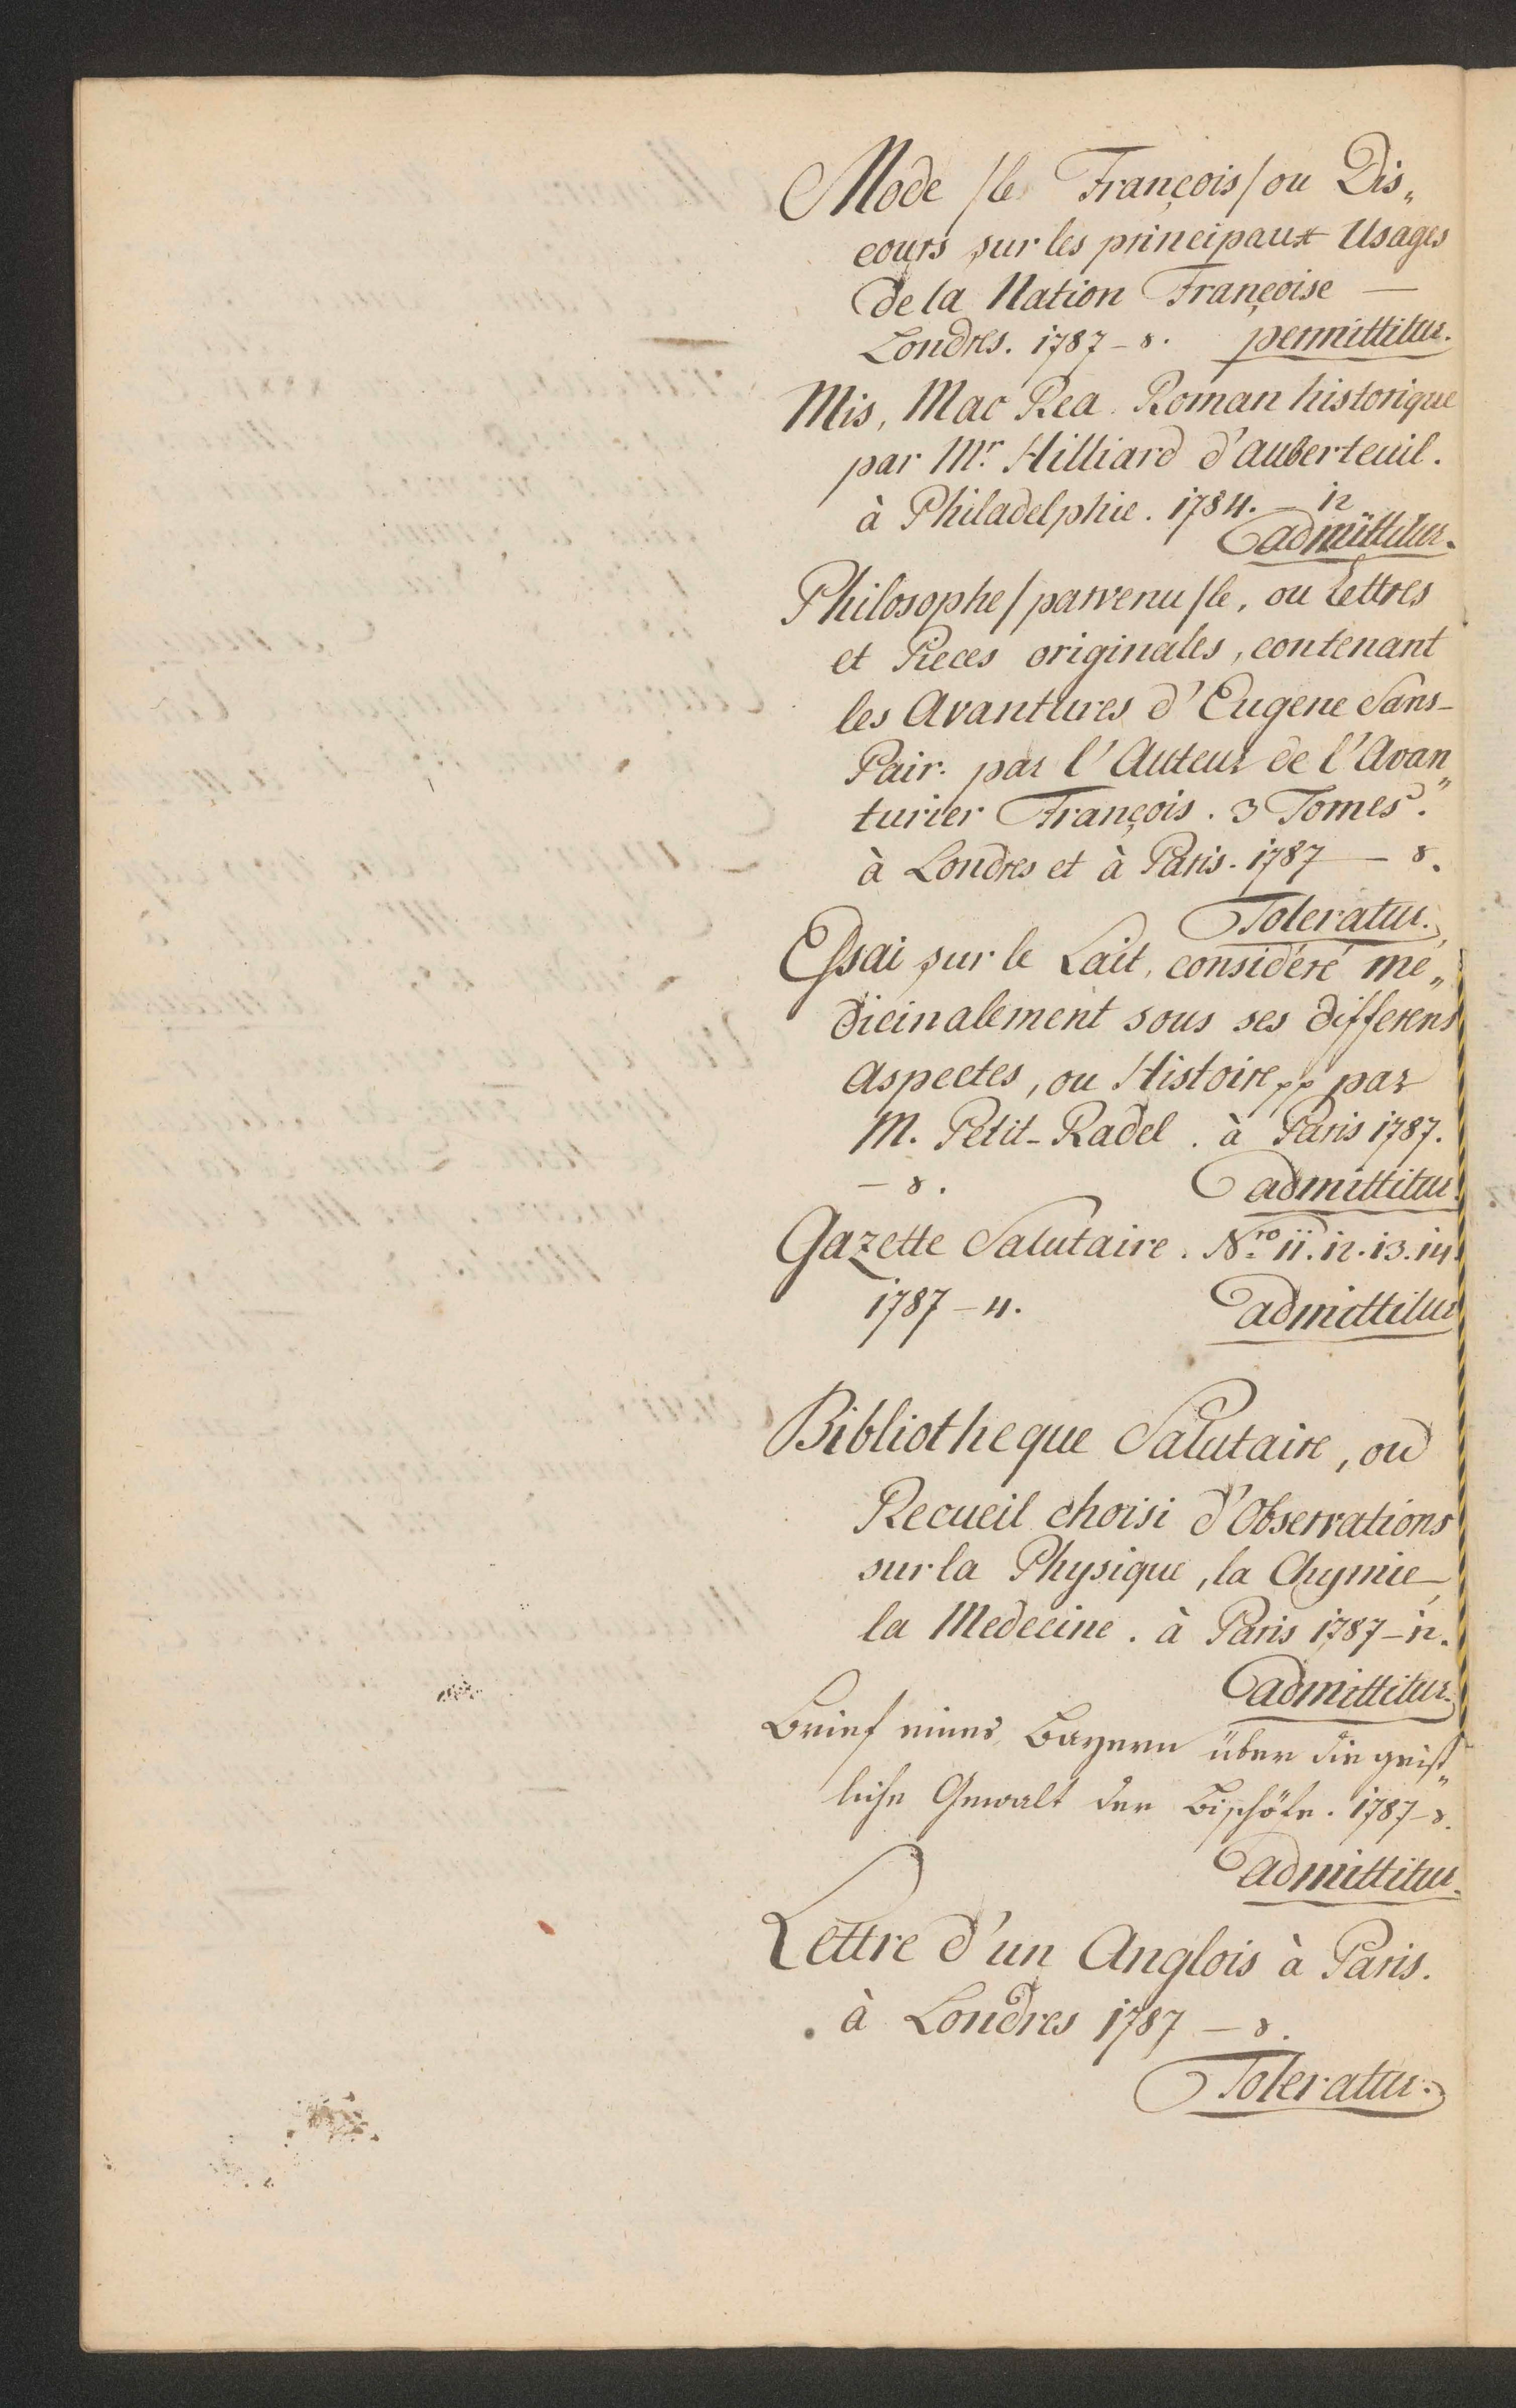 Mode /le François/ ou Dis„
cours sur les principaux Usages
de la Nation Françoise —
Londres. 1787 – 8. permittitur.
Mis, Mac Rea. Roman historique
par Mr. Hilliard d'auberteuil.
à Philadelphie. 1784. – 12
admittitur.
Philosophe /parvenu /le, ou Lettres
et Pieces originales, contenant
les Avantures d'Eugene Sans-
Pair. par l'Auteur de l'Avan„
turier François. 3 Tomes.
à Londres et à Paris. 1787 – 8.
Toleratur.
Essai sur le Lait, considéré me„
dicinalement sous ses differens
Aspectes, ou Histoire pp par
M. Petit-Radel. à Paris 1787.
– 8. admittitur.
Gazette Salutaire. Nro 11. 12. 13. 14.
1787 – 4. admittitur
Bibliotheque Salutaire, ou
Recueil choisi d'Observations
sur la Physique, la Chymie,
la Medecine. à Paris 1787 – 12.
admittitur.
Brief eines Bayern über die geist„
liche Gewalt der Bischöfe. 1787 – 8.
admittitur.
Lettre d'un Anglois à Paris.
à Londres 1787 – 8.
Toleratur.